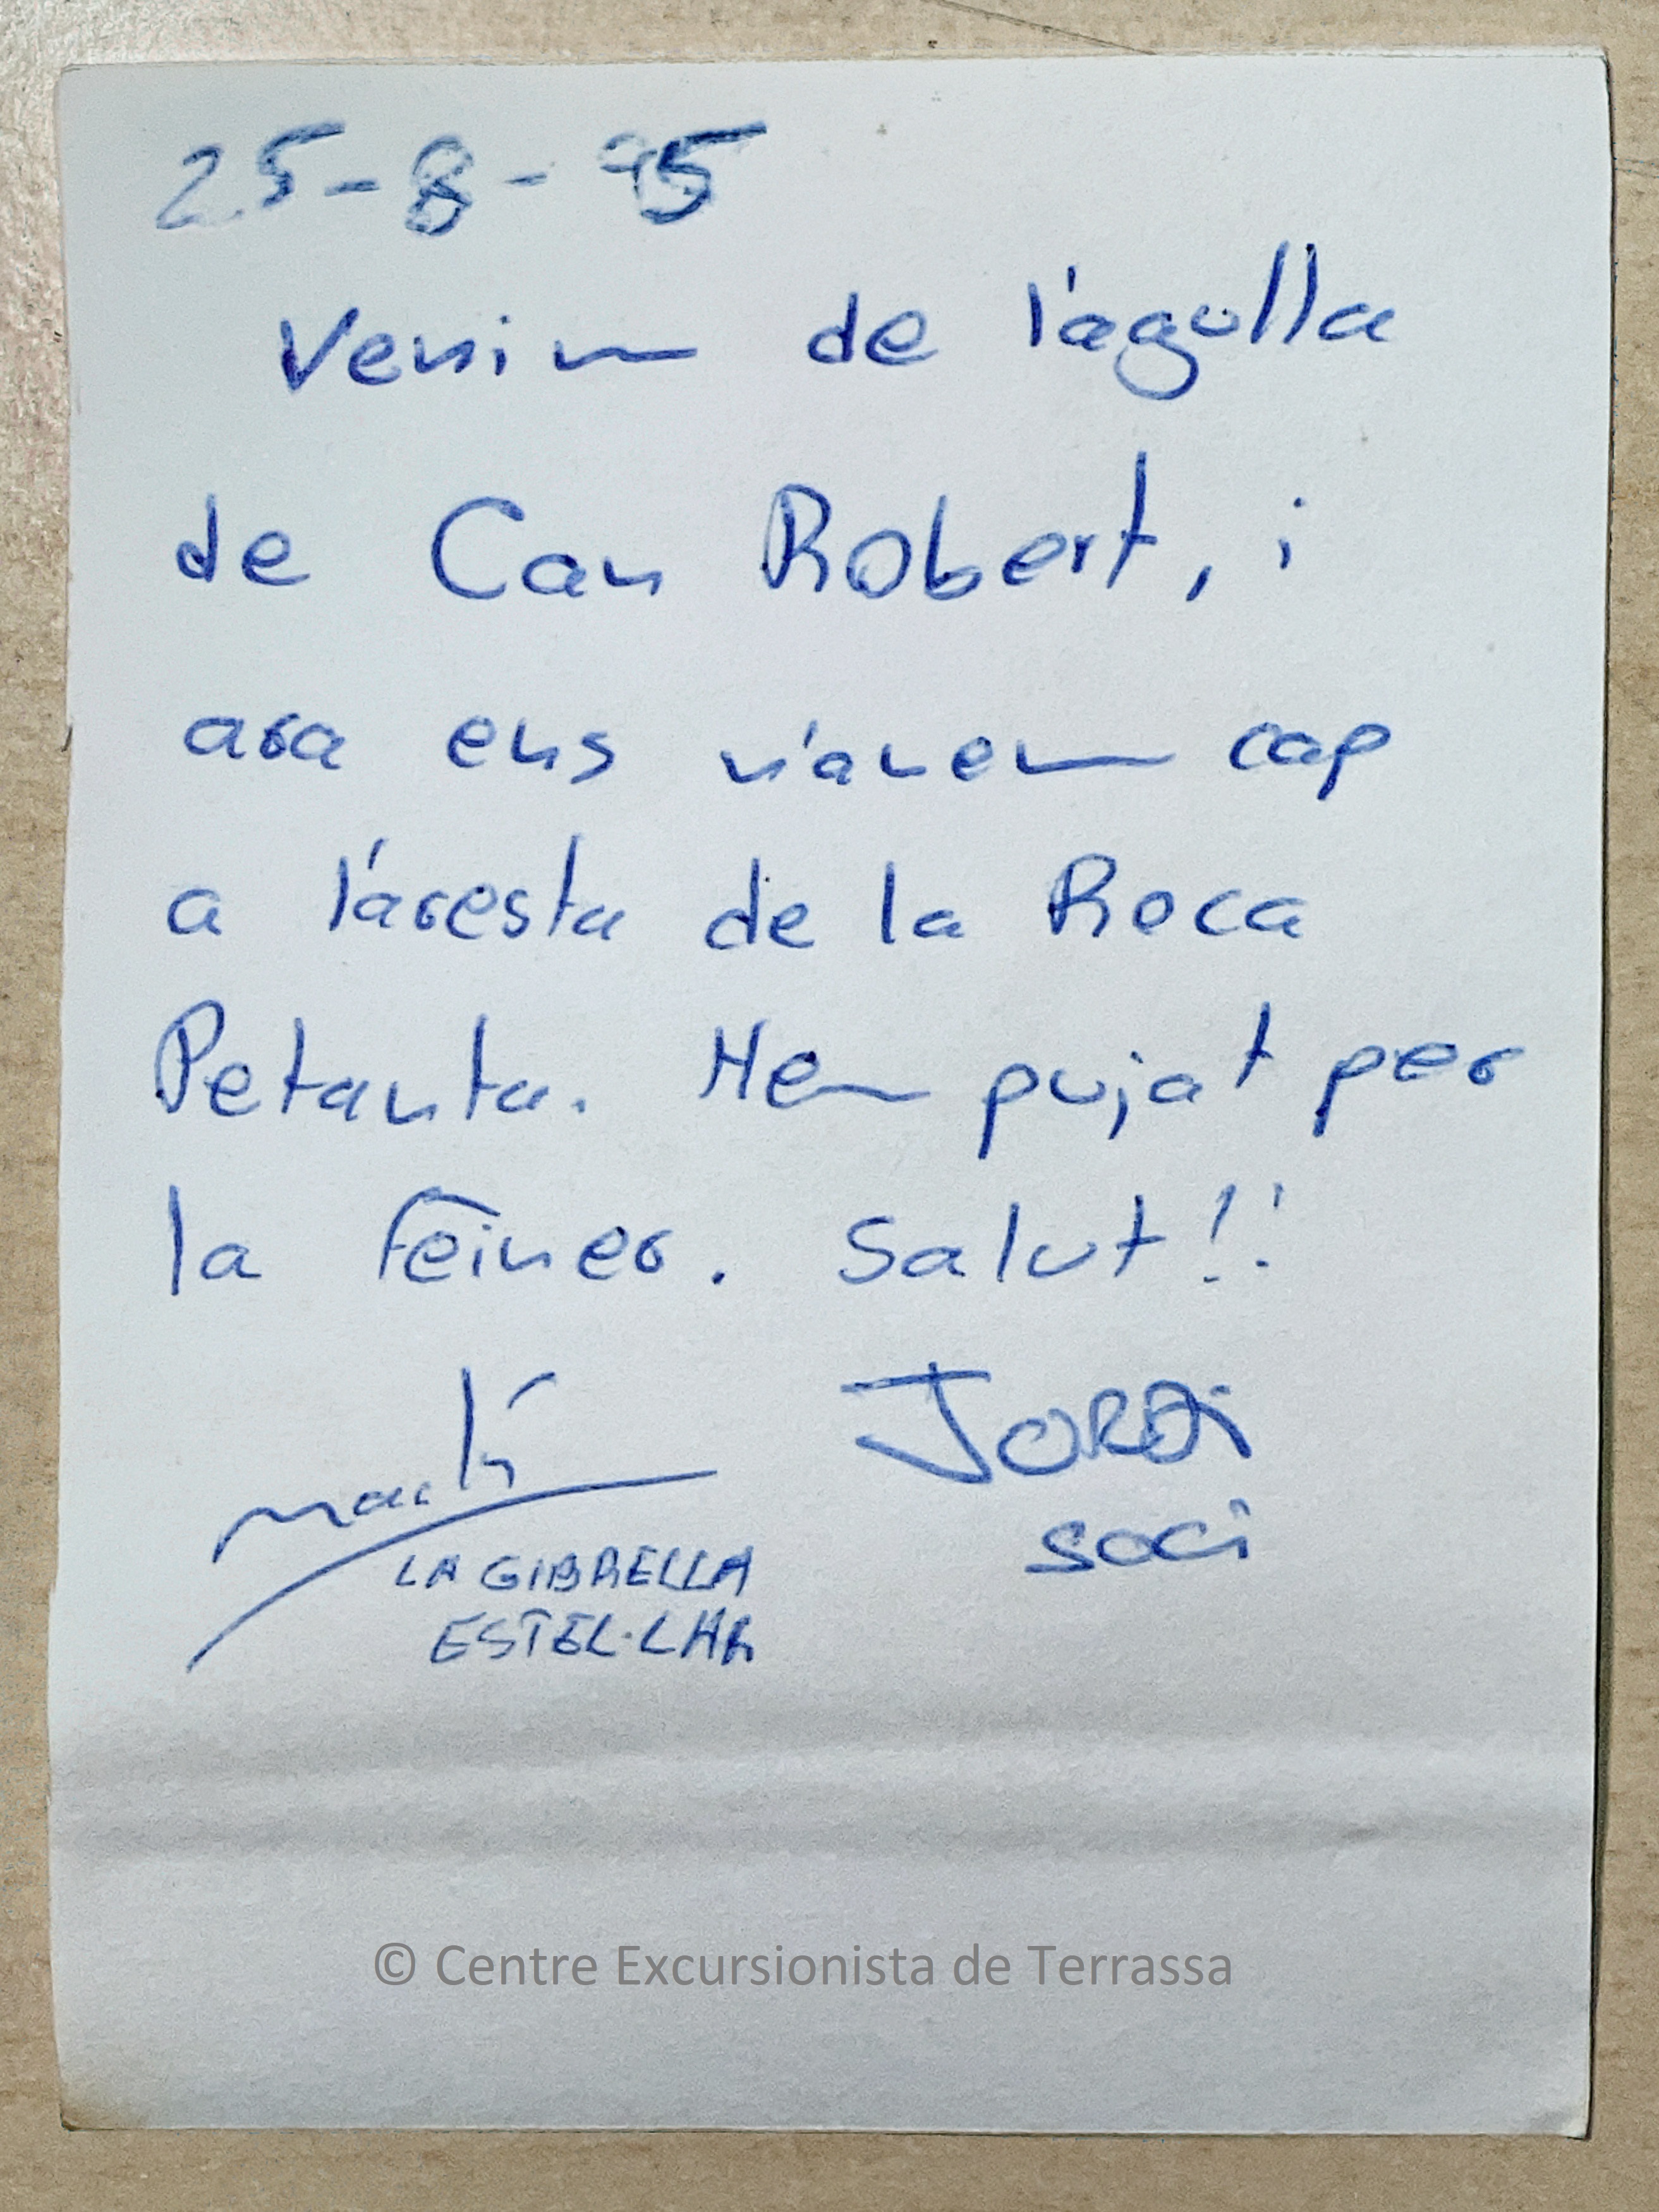 25-8-95
Venim de l'agulla
de Can Robert, i
ara ens n'anem cap
a l'aresta de la Roca
Petanta. Hem pujat per
la Feiner. Salut!!
Martí JORDi
soci
LA GIBRELLA
ESTEL·LAR
© Centre Excursionista de Terrassa